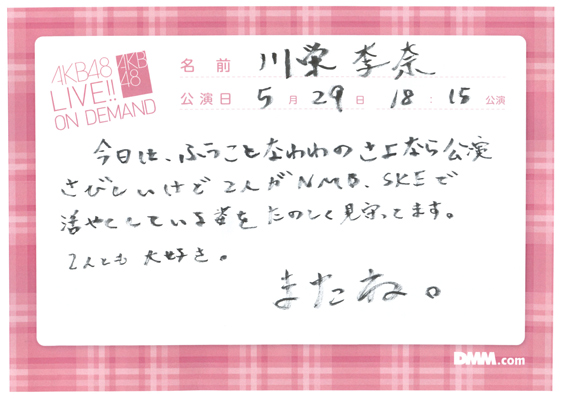 AKB48
LIVE!!
ON DEMAND
AKB
48
名 前 川栄 李奈
公演日 5月 29日 18:15 公演
今日は、ふうことなわわのさよなら公演
さびしいけど2人がNMB、SKEで
活やくしている姿をたのしく見守ってます。
2人とも大好き。
またね。
DMM.com